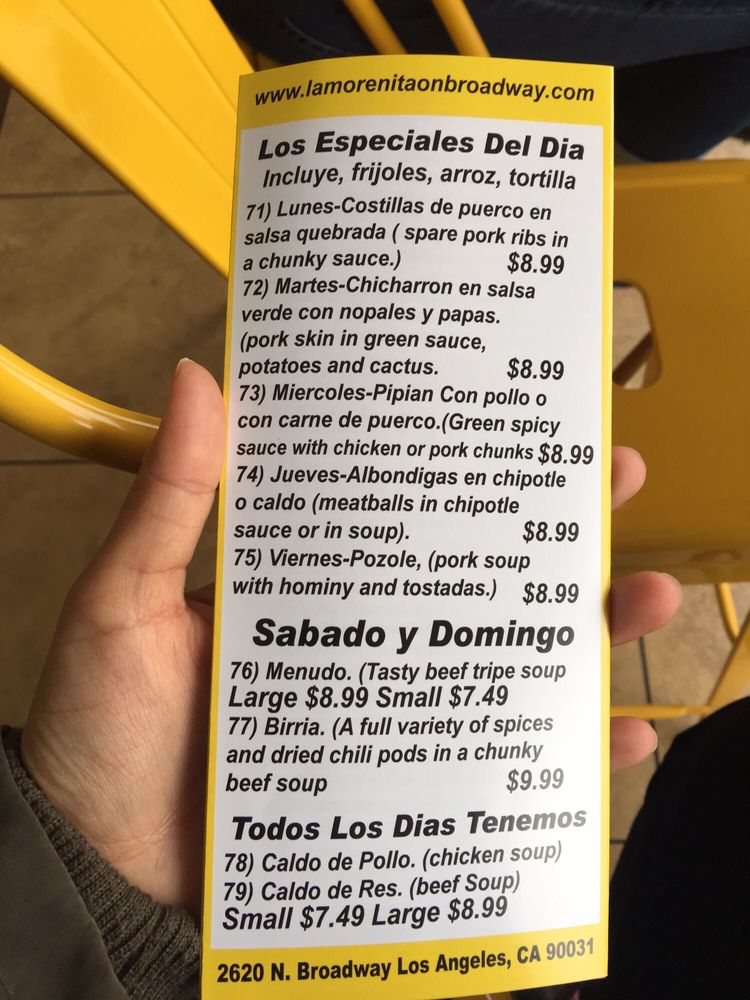 www.lamorenitaonbroadway.com
Los Especiales Del Dia
Incluye, frijoles, arroz, tortilla
71) Lunes-Costillas de puerco en
salsa quebrada ( spare pork ribs in
a chunky sauce.) $8.99
72) Martes-Chicharron en salsa
verde con nopales y papas.
(pork skin in green sauce,
potatoes and cactus. $8.99
73) Miercoles-Pipian Con pollo o
con carne de puerco.(Green spicy
sauce with chicken or pork chunks $8.99
74) Jueves-Albondigas en chipotle
o caldo (meatballs in chipotle
sauce or in soup). $8.99
75) Viernes-Pozole, (pork soup
with hominy and tostadas.) $8.99
Sabado y Domingo
76) Menudo. (Tasty beef tripe soup
Large $8.99 Small $7.49
77) Birria. (A full variety of spices
and dried chili pods in a chunky
beef soup $9.99
Todos Los Dias Tenemos
78) Caldo de Pollo. (chicken soup)
79) Caldo de Res. (beef Soup)
Small $7.49 Large $8.99
2620 N. Broadway Los Angeles, CA 90031